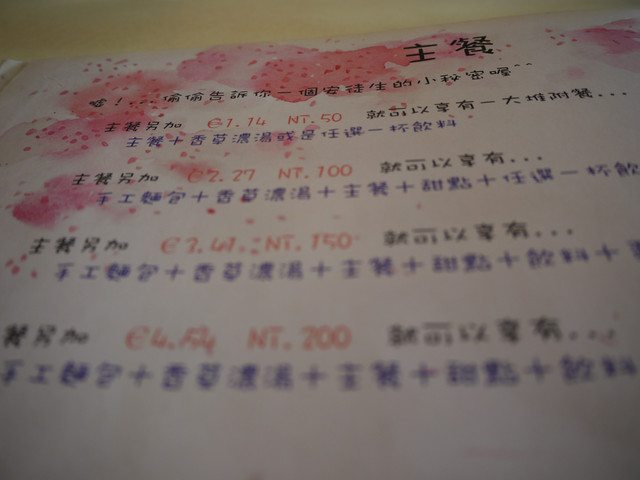 主餐
嘘！... 偷偷告訴你一個安徒生的小秘密喔~~
主餐另加 €1.14 NT.50 就可以享有一大堆附餐...
主餐+香草濃湯或是任選一杯飲料
主餐另加 €2.27 NT.100 就可以享有...
手工麵包+香草濃湯+主餐+甜點+任選一杯飲
主餐另加 €3.41 NT.150 就可以享有...
手工麵包+香草濃湯+主餐+甜點+飲料+
餐另加 €4.54 NT.200 就可以享有...
手工麵包+香草濃湯+主餐+甜點+飲料